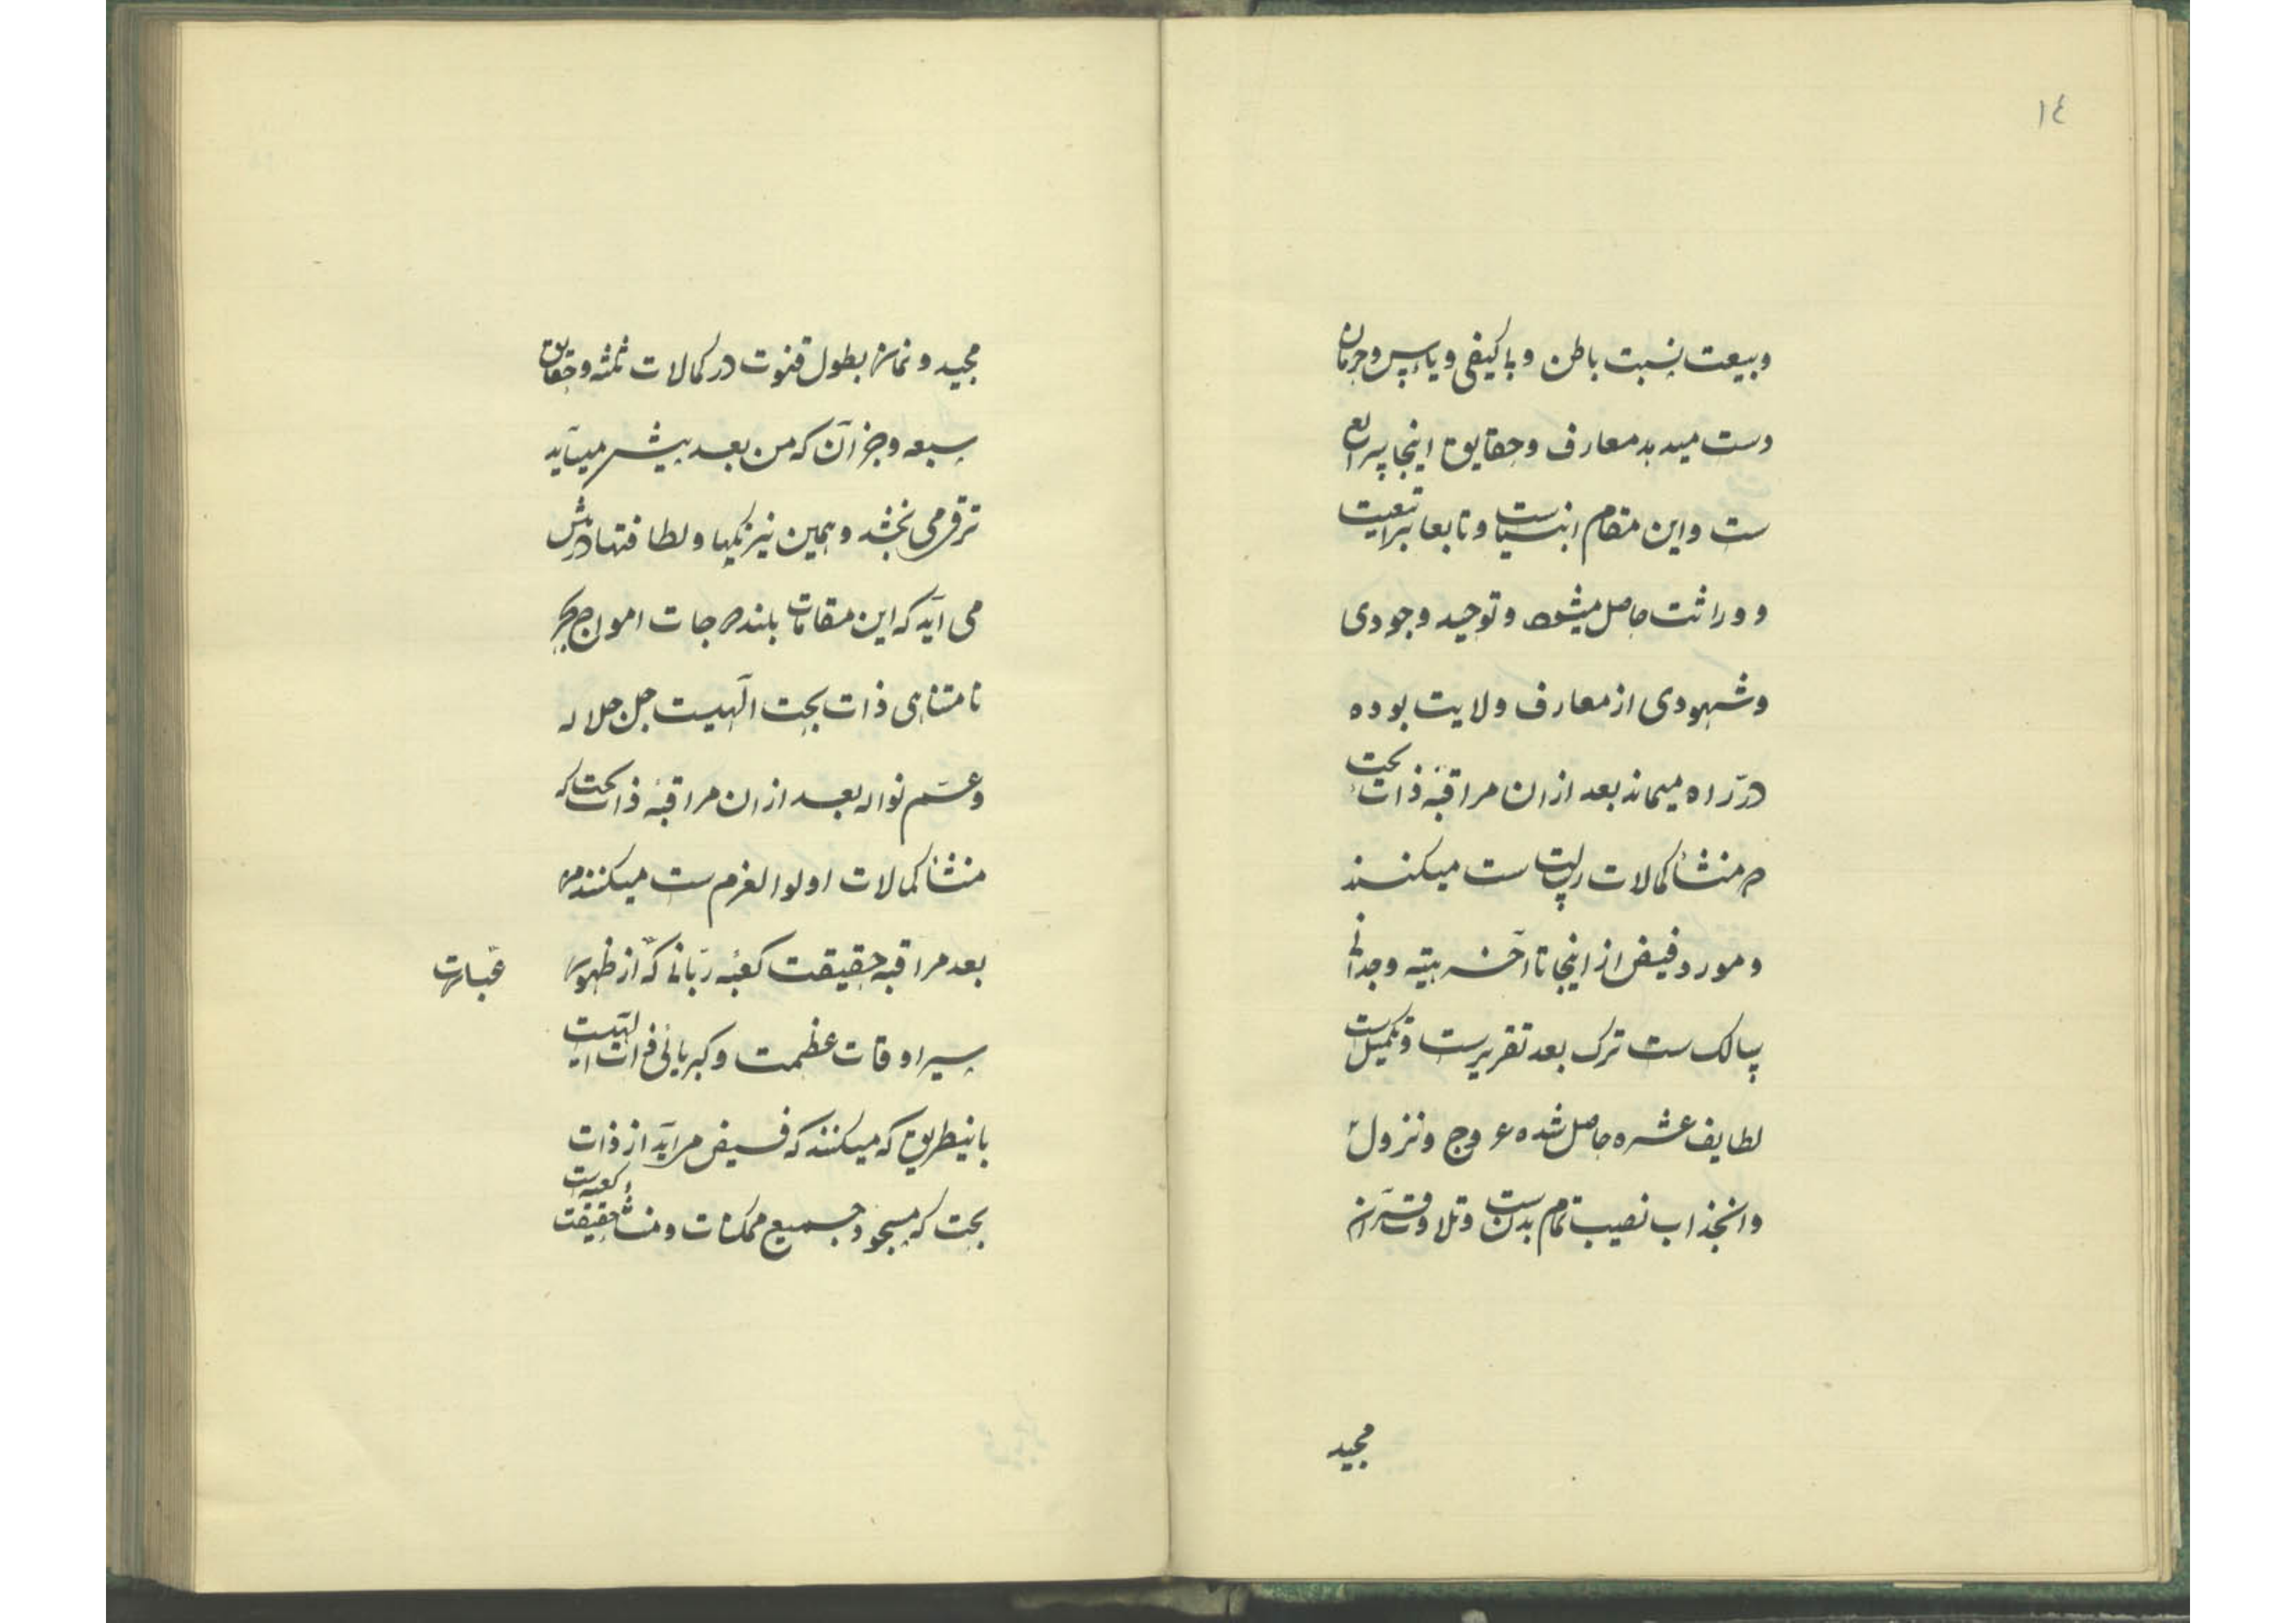 ١٤
وبیعت نسبت باطن و باکیفی و یاس و حرمان
دست میدهد معارف و حقایق اینجا شرایع
ست و این مقام انبیاست و تابعانرا تبعیت
و وراثت حاصل میشود و توحید وجودی
و شهودی از معارف ولایت بوده
در راه میماند بعد ازان مراقبهٔ ذات بحت
که منشأ کمالات رسالت ست میکنند
و مورد فیض از اینجا تا آخر هیئة وجدانی
سالک ست ترک بعد تقریرست و تکمیل ست
لطایف عشره حاصل شده عروج و نزول
و انجذاب نصیب تمام بدن ست و تلاوت قرآن
مجید
مجید و نماز بطول قنوت در کمالات ثلثه و حقایق
سبعه و جز آن که من بعد بیشتر میآید
ترقی می بخشد و همین نیرنگیها و لطافتها در پیش
می آید که این مقامات بلند درجات امواج بحر
نامتناهی ذات بحت الهیست جل جلاله
و عم نواله بعد ازان مراقبهٔ ذات بحت که
منشأ کمالات اولوالعزم ست میکنند من
بعد مراقبه حقیقت کعبه ربانی که از ظهور
سرادقات عظمت و کبریائی ذات الهیست
باینطریق که میکنند که فیض می آید از ذات
بحت که مسجود جمیع ممکنات و منشأ حقیقت کعبه ست